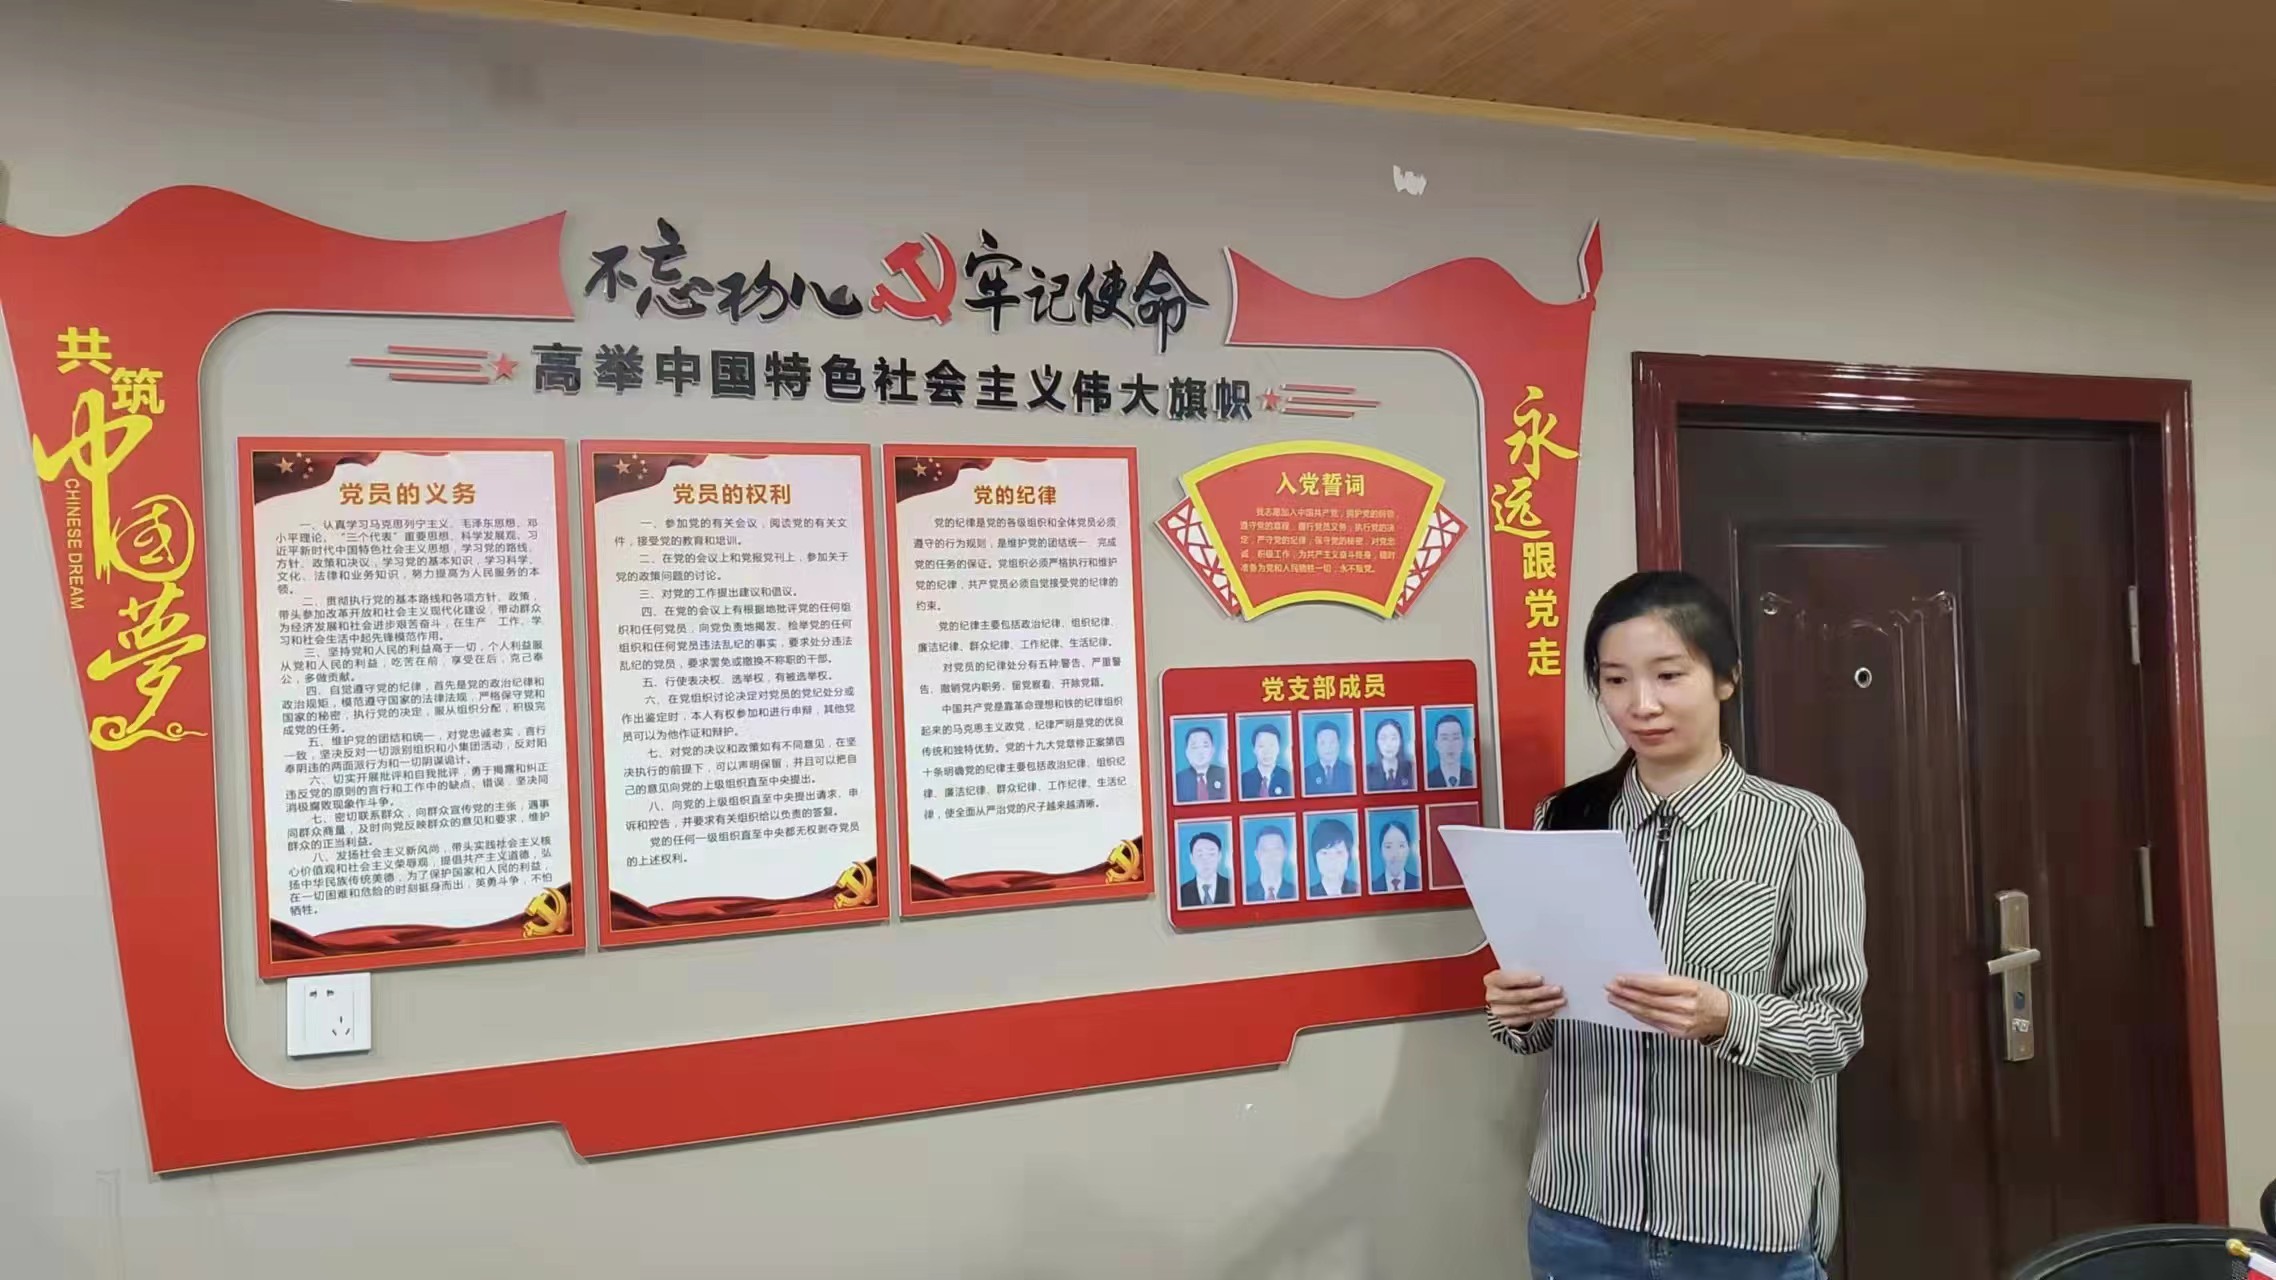 不忘初心 牢记使命
高举中国特色社会主义伟大旗帜
共筑
中国梦
CHINESE DREAM
党员的义务
一、认真学习马克思列宁主义、毛泽东思想、邓
小平理论、“三个代表”重要思想、科学发展观、习
近平新时代中国特色社会主义思想，学习党的路线、
方针、政策和决议，学习党的基本知识，学习科学、
文化、法律和业务知识，努力提高为人民服务的本
领。
二、贯彻执行党的基本路线和各项方针、政策，
带头参加改革开放和社会主义现代化建设，带动群众
为经济发展和社会进步艰苦奋斗，在生产 工作、学
习和社会生活中起先锋模范作用。
三、坚持党和人民的利益高于一切，个人利益服
从党和人民的利益，吃苦在前，享受在后，克己奉
公，多做贡献。
四、自觉遵守党的纪律，首先是党的政治纪律和
政治规矩，模范遵守国家的法律法规，严格保守党和
国家的秘密，执行党的决定，服从组织分配，积极完
成党的任务。
五、维护党的团结和统一，对党忠诚老实，言行
一致，坚决反对一切派别组织和小集团活动，反对阳
奉阴违的两面派行为和一切阴谋诡计。
六、切实开展批评和自我批评，勇于揭露和纠正
违反党的原则的言行和工作中的缺点、错误，坚决同
消极腐败现象作斗争。
七、密切联系群众，向群众宣传党的主张，遇事
同群众商量，及时向党反映群众的意见和要求，维护
群众的正当利益。
八、发扬社会主义新风尚，带头实践社会主义核
心价值观和社会主义荣辱观，提倡共产主义道德，弘
扬中华民族传统美德，为了保护国家和人民的利益，
在一切困难和危险的时刻挺身而出，英勇斗争，不怕
牺牲。
党员的权利
一、参加党的有关会议，阅读党的有关文
件，接受党的教育和培训。
二、在党的会议上和党报党刊上，参加关于
党的政策问题的讨论。
三、对党的工作提出建议和倡议。
四、在党的会议上有根据地批评党的任何组
织和任何党员，向党负责地揭发、检举党的任何
组织和任何党员违法乱纪的事实，要求处分违法
乱纪的党员，要求罢免或撤换不称职的干部。
五、行使表决权、选举权，有被选举权。
六、在党组织讨论决定对党员的党纪处分或
作出鉴定时，本人有权参加和进行申辩，其他党
员可以为他作证和辩护。
七、对党的决议和政策如有不同意见，在坚
决执行的前提下，可以声明保留，并且可以把自
己的意见向党的上级组织直至中央提出。
八、向党的上级组织直至中央提出请求、申
诉和控告，并要求有关组织给以负责的答复。
党的任何一级组织直至中央都无权剥夺党员
的上述权利。
党的纪律
党的纪律是党的各级组织和全体党员必须
遵守的行为规则，是维护党的团结统一 完成
党的任务的保证。党组织必须严格执行和维护
党的纪律，共产党员必须自觉接受党的纪律的
约束。
党的纪律主要包括政治纪律、组织纪律、
廉洁纪律、群众纪律、工作纪律、生活纪律。
对党员的纪律处分有五种:警告、严重警
告、撤销党内职务、留党察看、开除党籍。
中国共产党是靠革命理想和铁的纪律组织
起来的马克思主义政党，纪律严明是党的优良
传统和独特优势。党的十九大党章修正案第四
十条明确党的纪律主要包括政治纪律、组织纪
律、廉洁纪律、群众纪律、工作纪律、生活纪
律，使全面从严治党的尺子越来越清晰。
入党誓词
我志愿加入中国共产党，拥护党的纲领，
遵守党的章程，履行党员义务，执行党的决
定，严守党的纪律，保守党的秘密，对党忠
诚，积极工作，为共产主义奋斗终身，随时
准备为党和人民牺牲一切，永不叛党。
党支部成员
永远跟党走